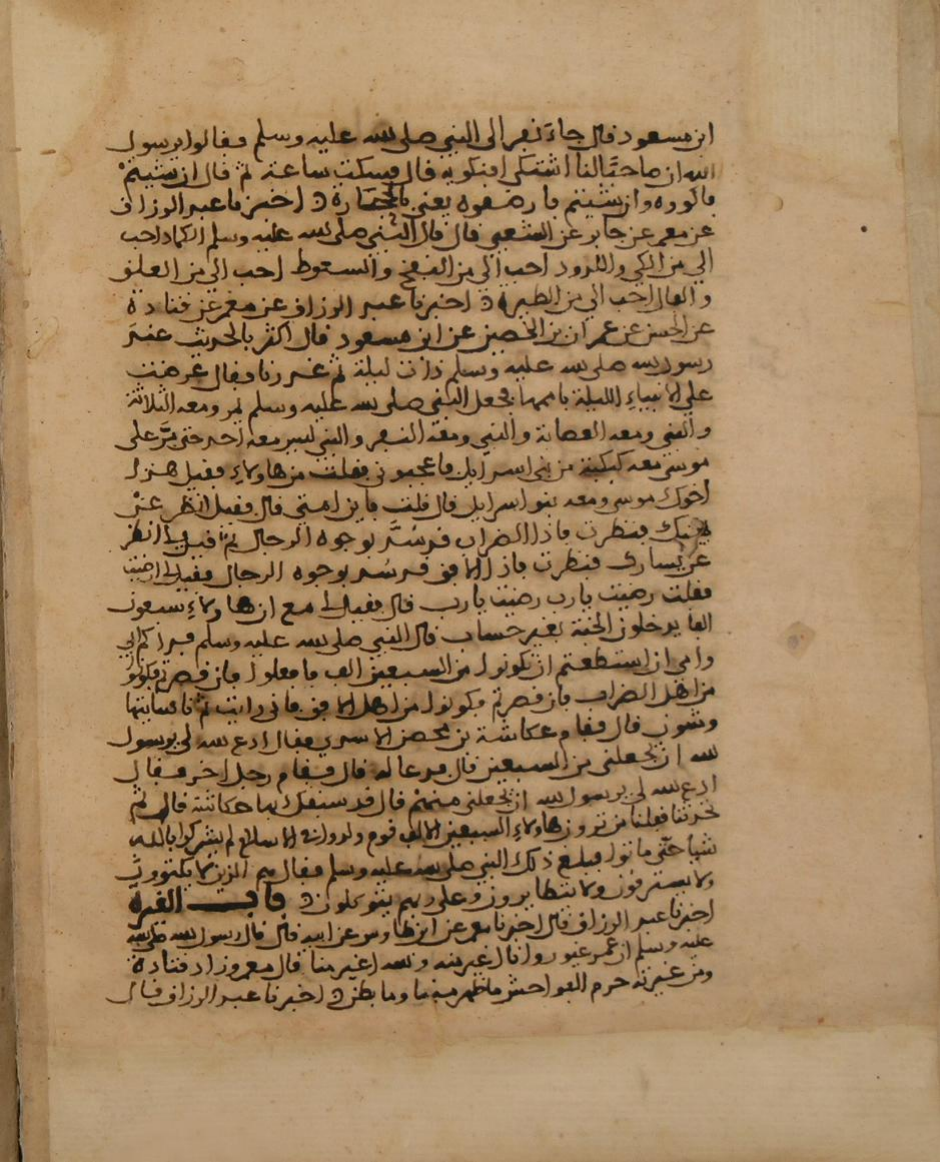 ابن مسعود قال جاء نفر الى النبي صلى الله عليه وسلم فقالوا يرسول
الله ان صاحبا لنا اشتكى افنكويه قال فسكت ساعة ثم قال ان شيتم
فاكووه وان شيتم فارضفوه يعني بالحجارة اخبرنا عبد الرزاق
عن معمر عن جابر عن الشعبي قال قال النبي صلى الله عليه وسلم الكماد احب
الي من الكي واللدود احب الي من النفخ والسعوط احب الي من العلق
والفال احب الي من الطيرة اخبرنا عبد الرزاق عن معمر عن قتادة
عن الحسن عن عمران بن الحصين عن ابن مسعود قال اكثرنا الحديث عند
رسول الله صلى الله عليه وسلم ذات ليلة ثم غدونا فقال عرضت
علي الانبياء الليلة باممها فجعل النبي صلى الله عليه وسلم يمر ومعه الثلاثة
والنبي ومعه العصابة والنبي ومعه النفر والنبي ليس معه احد حتى مر علي
موسى معه كبكبة من بني اسرايل فاعجبوني فقلت من هاولاء فقيل هذا
اخوك موسى ومعه بنو اسرايل قال قلت فاين امتي قال فقيل انظر عن
يمينك فنظرت فاذا الضراب قد سد بوجوه الرجال ثم قيل لي انظر
عن يسارك فنظرت فاذا الافق قد سد بوجوه الرجال فقيل لي ارضيت
فقلت رضيت يارب رضيت يارب قال فقيل لي مع ان هاولاء سبعون
الفا يدخلون الجنة بغير حساب قال النبي صلى الله عليه وسلم فداكم ابي
وامي ان استطعتم ان تكونوا من السبعين الف فافعلوا فان قصرتم فكونوا
من اهل الضراب فان قصرتم فكونوا من اهل الافق فاني رايت ثم ناسا
قال فقام عكاشة بن محصن الاسدي فقال ادع الله لي يرسول
الله ان يجعلني من السبعين قال فدعا له قال فقام رجل اخر فقال
ادع الله لي يرسول الله ان يجعلني منهم قال قد سبقك بها عكاشة قال ثم
تحدثنا فقلنا من ترون هاولاء السبعين الالف قوم ولدوا في الاسلام لم يشركوا بالله
شيا حتى ماتوا فبلغ ذلك النبي صلى الله عليه وسلم فقال هم الذين لا يكتوون
ولا يسترقون ولا يتطايرون وعلى ربهم يتوكلون باب الغيرة
اخبرنا عبد الرزاق قال اخبرنا معمر عن ابن طاوس عن ابيه قال قال رسول الله صلى الله
عليه وسلم ان عمر غيور وانا اغير منه والله اغير منا قال معمر وزاد قتادة
ومن غيرته حرم الفواحش ما ظهر منها وما بطن اخبرنا عبد الرزاق قال